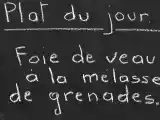 Plat du jour
Foie de veau
à la mélasse
de grenades.